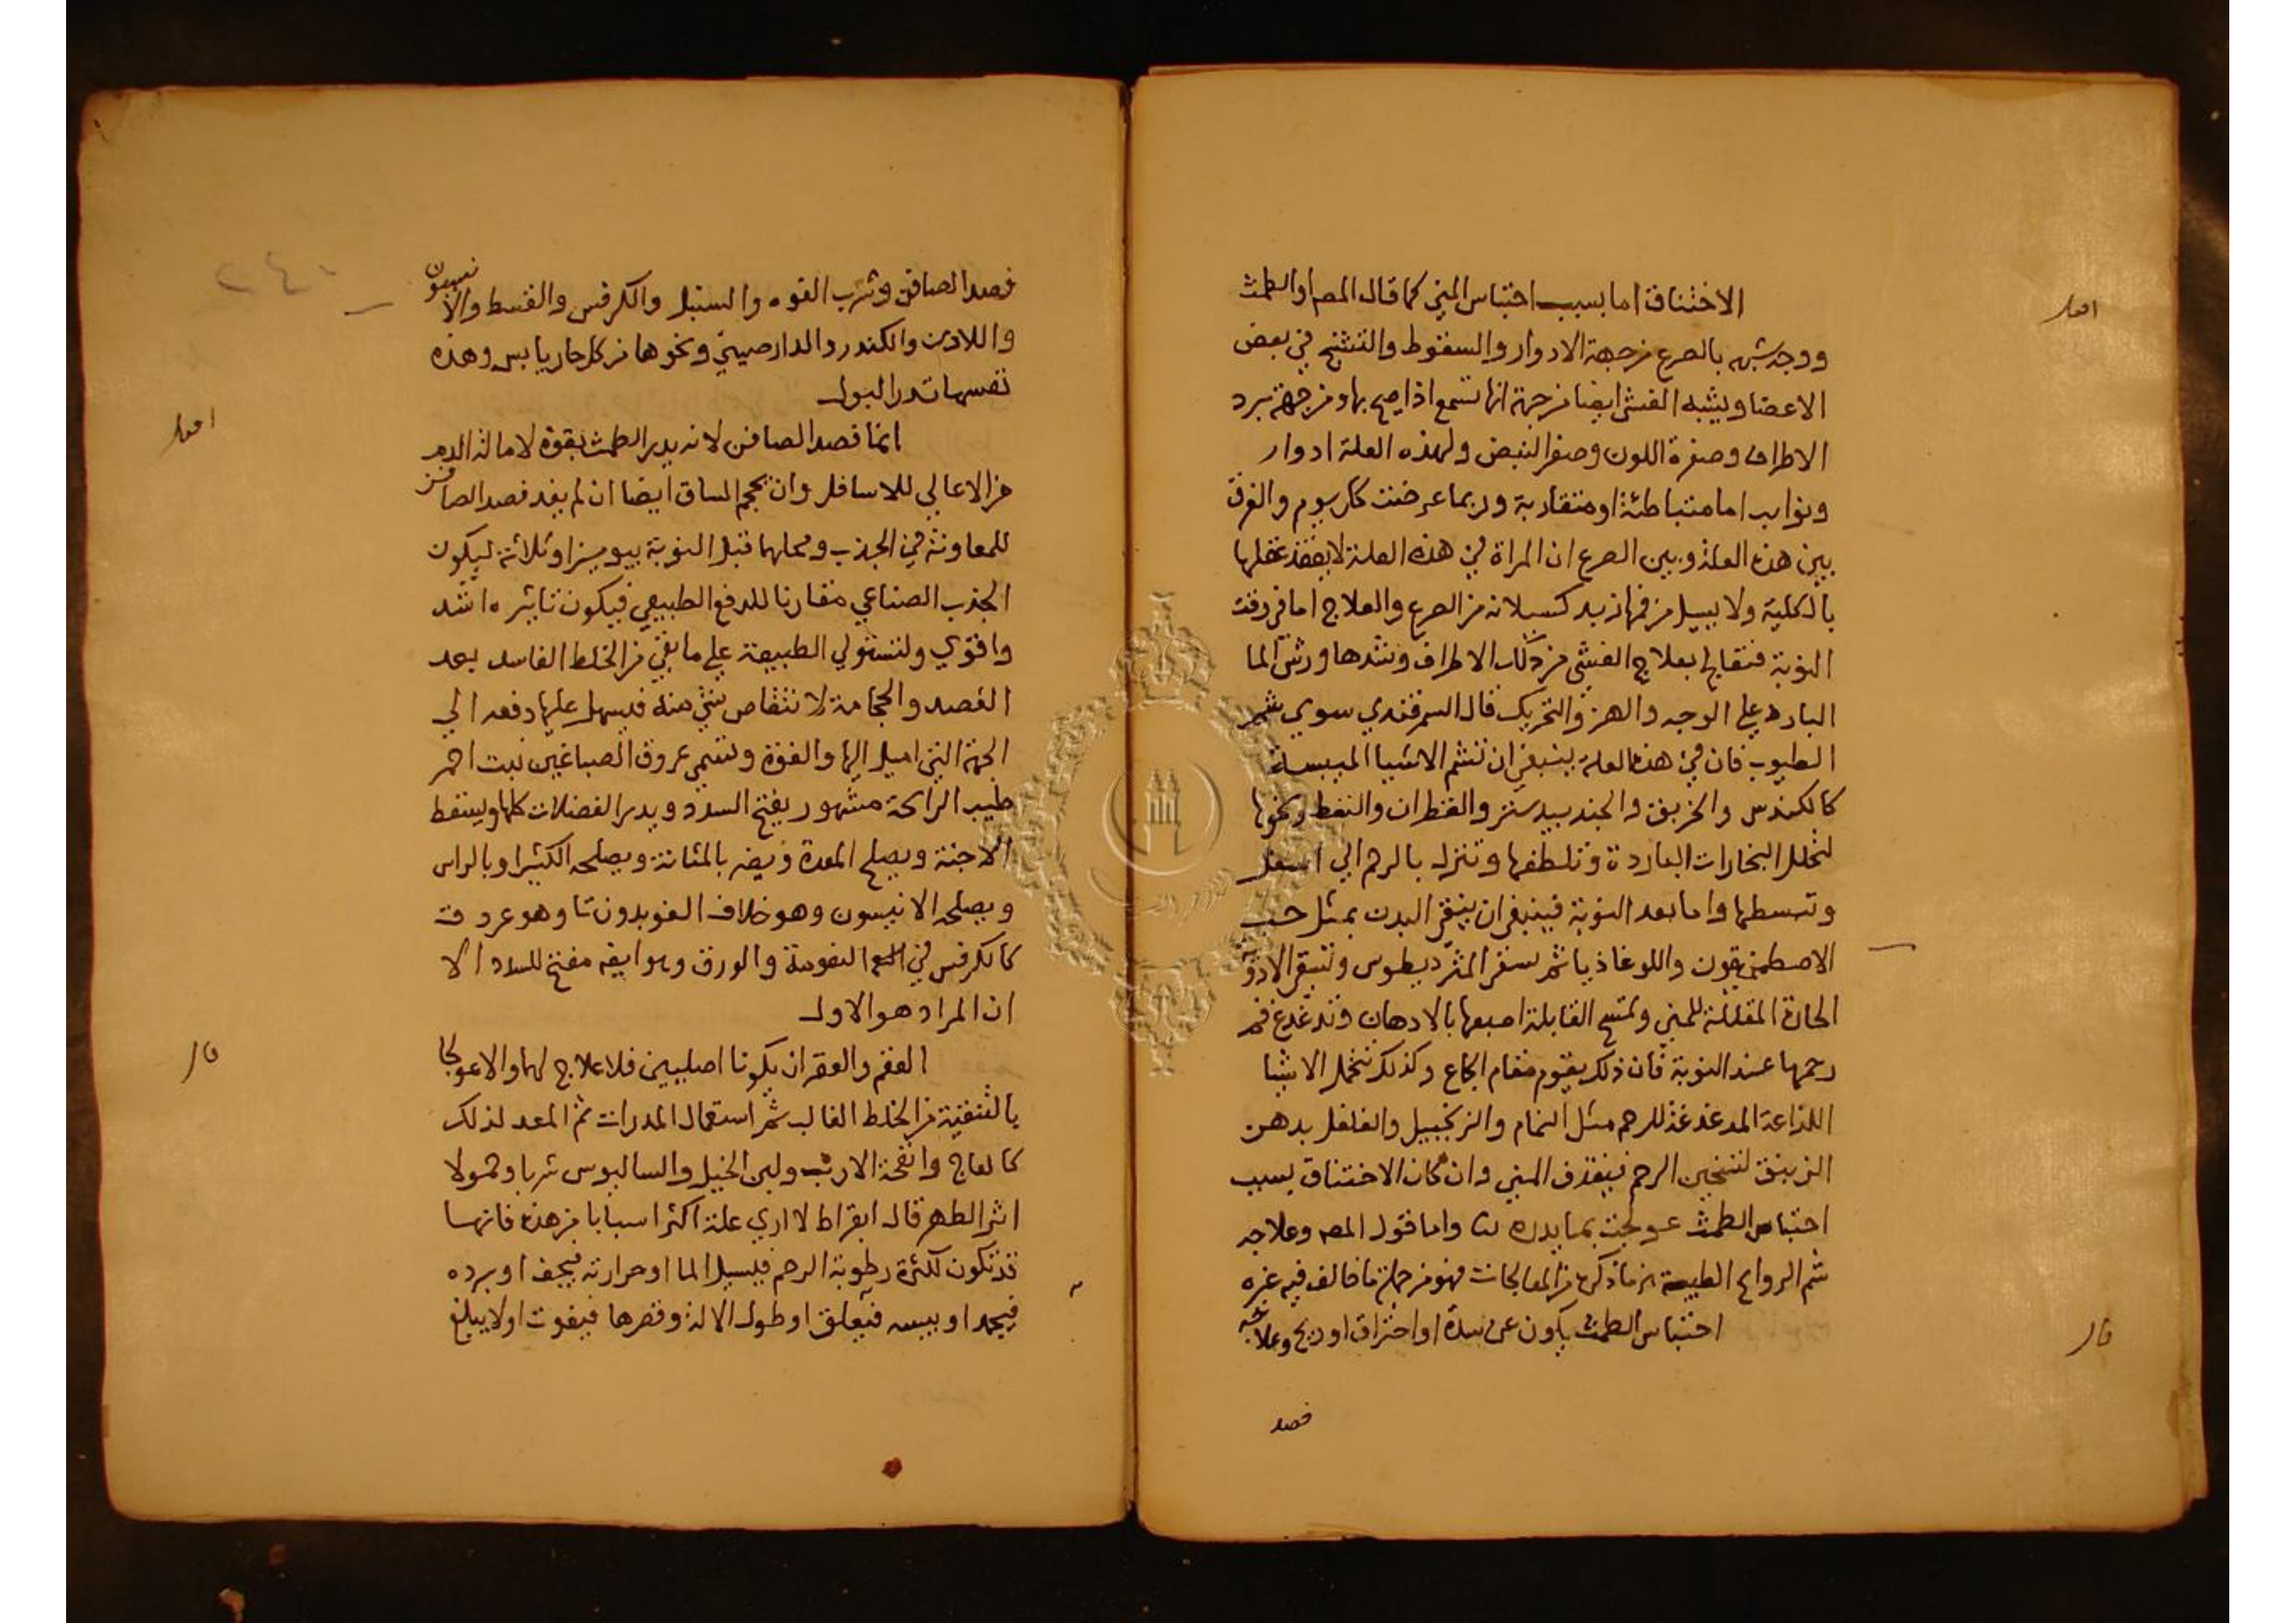 الاختناق اما بسبب احتباس المني كما قال المص او الطمث
ووجه شبهه بالصرع من جهة الادوار والسقوط والتشنج في بعض
الاعضا ويشبه الغشي ايضا من جهة انها تسمع اذا صيح بها ومن جهة برد
الاطراف وصفرة اللون وصغر النبض ولهذه العلة ادوار
ونوايب اما متباطئة او متقاربة وربما عرضت كل يوم والفرق
بين هذه العلة وبين الصرع ان المراة في هذه العلة لا يفقد عقلها
بالكلية ولا يسيل من فمها زبد كسيلانه من الصرع والعلاج اما في وقت
النوبة فتعالج بعلاج الغشي من دلك الاطراف وشدها ورش الما
البارد علي الوجه والهز والتحريك قال السمرقندي سوي شم
الطيوب فان في هذه العلة ينبغي ان تشم الاشيا
كالكندس والخربق والجندبيدستر والقطران والنفط ونحوها
لتحلل البخارات الباردة وتلطفها وتنزل بالرحم الي اسفل
وتبسطها واما بعد النوبة فينبغي ان ينقي البدن بمثل حب
الاصطمخيقون واللوغاذيا ثم بسقي المثرديطوس وتسقي الادوية
الحارة المقللة للمني وتمسح القابلة اصبعها بالادهان وتدغدغ فم
رحمها عند النوبة فان ذلك يقوم مقام الجماع وكذلك تتحمل الاشيا
اللذاعة المدغدغة للرحم مثل النمام والزنجبيل والفلفل بدهن
الزنبق لتسخين الرحم فينقذف المني وان كان الاختناق بسبب
احتباس الطمث عولجت بما يدره واما قول المص وعلاجه
شم الروايح الطيبة من ما ذكره من المعالجات فهو من جملة ما خالف فيه غيره
احتباس الطمث يكون عن سدة او احتراق او ريح وعلاجه
فصد
فصد الصافن وشرب الفوه والسنبل والكرفس والقسط والانيسون
واللادن والكندر والدارصيني ونحوها من كل حار يابس وهذه
نفسها تدر البول
انما فصد الصافن لانه يدر الطمث بقوة لامالة الدم
من الاعالي للاسافل وان يحجم الساق ايضا ان لم يفد فصد الصافن
للمعاونة في الجذب ومحلهما قبل النوبة بيومين او ثلاثة ليكون
الجذب الصناعي مقارنا للدفع الطبيعي فيكون تاثيره اشد
واقوي ولتستولي الطبيعة علي ما بقي من الخلط الفاسد بعد
الفصد والحجامة لانتقاص شي منه فيسهل عليها دفعه الي
الجهة التي اميل اليها والفوة وتسمي عروق الصباغين نبت احمر
طيب الرايحة مشهور يفتح السدد ويدر الفضلات كلها ويسقط
الاجنة ويصلح المعدة ويضر بالمثانة ويصلحه الكثيرا وبالراس
ويصلحه الانيسون وهو خلاف وهو عروق
كالكرفس في والورق وهو ايضا مفتح للسدد الا
ان المراد هو الاول
العقم والعقر ان يكونا اصليين فلا علاج لهما والا عولجا
بالتنقية من الخلط الغالب ثم استعمال المدرات ثم المعد لذلك
كالعاج وانفحة الارنب ولبن الخيل والساليوس شربا وحمولا
اثر الطهر قال ابقراط لا اري علة اكثر اسبابا من هذه فانها
قد تكون لكثرة رطوبة الرحم فيسيل الما او حرارته فيجف او برده
فيجمد او يبسه فيعلق او طول الالة وقصرها فيفوت او لا يبلغ